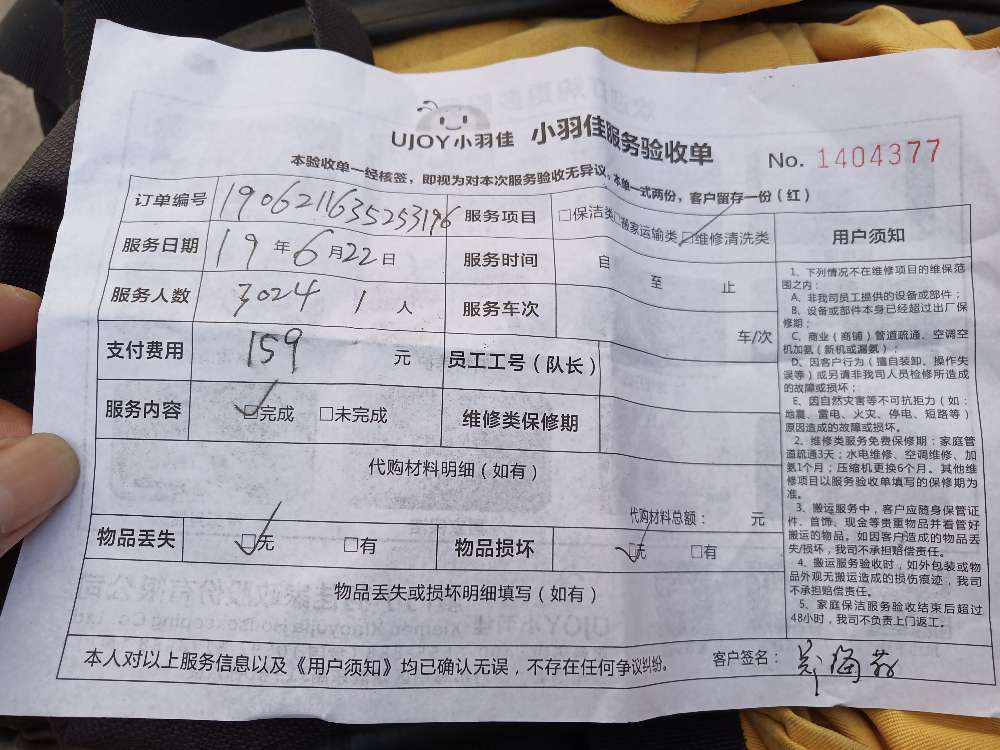 UJOY小羽佳 小羽佳服务验收单 No. 1404377
本验收单一经核签，即视为对本次服务验收无异议，本单一式两份，客户留存一份（红）
订单编号 1906211635253196 服务项目 □保洁类□搬家运输类□维修清洗类
服务日期 19年6月22日 服务时间 自 至 止
服务人数 3024 1 人 服务车次 车/次
支付费用 159 元 员工工号（队长）
服务内容 □完成 □未完成 维修类保修期
代购材料明细（如有）
代购材料总额： 元
物品丢失 □无 □有 物品损坏 □无 □有
物品丢失或损坏明细填写（如有）
本人对以上服务信息以及《用户须知》均已确认无误，不存在任何争议纠纷。 客户签名：
用户须知
1、下列情况不在维修项目的维保范
围之内：
A、非我司员工提供的设备或部件；
B、设备或部件本身已经超过出厂保
修期；
C、商业（商铺）管道疏通、空调空
机加氨（新机或漏氨）；
D、因客户行为（擅自装卸、操作失
误等）或另请非我司人员检修所造成
的故障或损坏；
E、因自然灾害等不可抗拒力（如：
地震、雷电、火灾、停电、短路等）
原因造成的故障或损坏。
2、维修类服务免费保修期：家庭管
道疏通3天；水电维修、空调维修、加
氨1个月；压缩机更换6个月。其他维
修项目以服务验收单填写的保修期为
准。
3、搬运服务中，客户应随身保管证
件、首饰、现金等贵重物品并看管好
搬运的物品。如因客户造成的物品丢
失/损坏，我司不承担赔偿责任。
4、搬运服务验收时，如外包装或物
品外观无搬运造成的损伤痕迹，我司
不承担赔偿责任。
5、家庭保洁服务验收结束后超过
48小时，我司不负责上门返工。